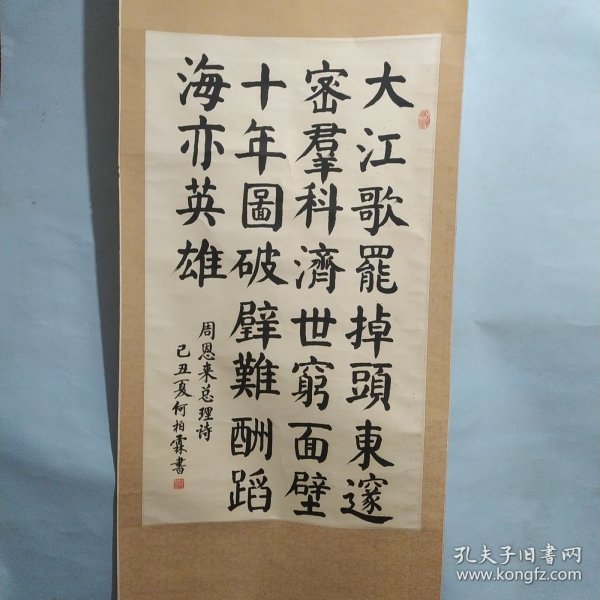 大江歌罷掉頭東邃
密羣科濟世窮面壁
十年圖破壁難酬蹈
海亦英雄
周恩来总理诗
己丑夏何柏霖書
孔夫子旧书网
www.kongfz.com